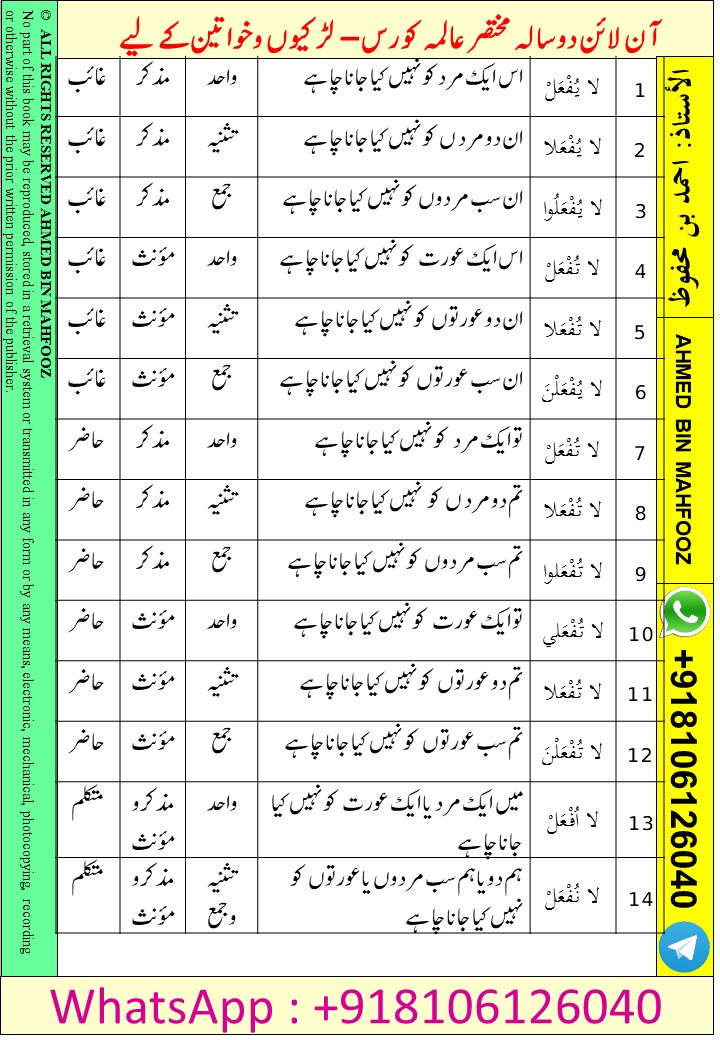 آن لائن دو سالہ مختصر عالمہ کورس – لڑکیوں و خواتین کے لیے
1 لا يُفْعَلْ اس ایک مرد کو نہیں کیا جانا چاہے واحد مذکر غائب
2 لا يُفْعَلا ان دو مردں کو نہیں کیا جانا چاہے تثنیہ مذکر غائب
3 لا يُفْعَلُوا ان سب مردوں کو نہیں کیا جانا چاہے جمع مذکر غائب
4 لا تُفْعَلْ اس ایک عورت کو نہیں کیا جانا چاہے واحد مؤنث غائب
5 لا تُفْعَلا ان دو عورتوں کو نہیں کیا جانا چاہے تثنیہ مؤنث غائب
6 لا يُفْعَلْنَ ان سب عورتوں کو نہیں کیا جانا چاہے جمع مؤنث غائب
7 لا تُفْعَلْ تو ایک مرد کو نہیں کیا جانا چاہے واحد مذکر حاضر
8 لا تُفْعَلا تم دو مردں کو نہیں کیا جانا چاہے تثنیہ مذکر حاضر
9 لا تُفْعَلوا تم سب مردوں کو نہیں کیا جانا چاہے جمع مذکر حاضر
10 لا تُفْعَلي تو ایک عورت کو نہیں کیا جانا چاہے واحد مؤنث حاضر
11 لا تُفْعَلا تم دو عورتوں کو نہیں کیا جانا چاہے تثنیہ مؤنث حاضر
12 لا تُفْعَلْنَ تم سب عورتوں کو نہیں کیا جانا چاہے جمع مؤنث حاضر
13 لا اُفْعَلْ میں ایک مرد یا ایک عورت کو نہیں کیا واحد مذکر و متکلم
جانا چاہے مؤنث
14 لا نُفْعَلْ ہم دو یا ہم سب مردوں یا عورتوں کو تثنیہ مذکر و متکلم
نہیں کیا جانا چاہے و جمع مؤنث
الأستاذ: احمد بن محفوظ
AHMED BIN MAHFOOZ
+918106126040
© ALL RIGHTS RESERVED AHMED BIN MAHFOOZ
No part of this book may be reproduced, stored in a retrieval system or transmitted in any form or by any means, electronic, mechanical, photocopying, recording
or otherwise without the prior written permission of the publisher.
WhatsApp : +918106126040